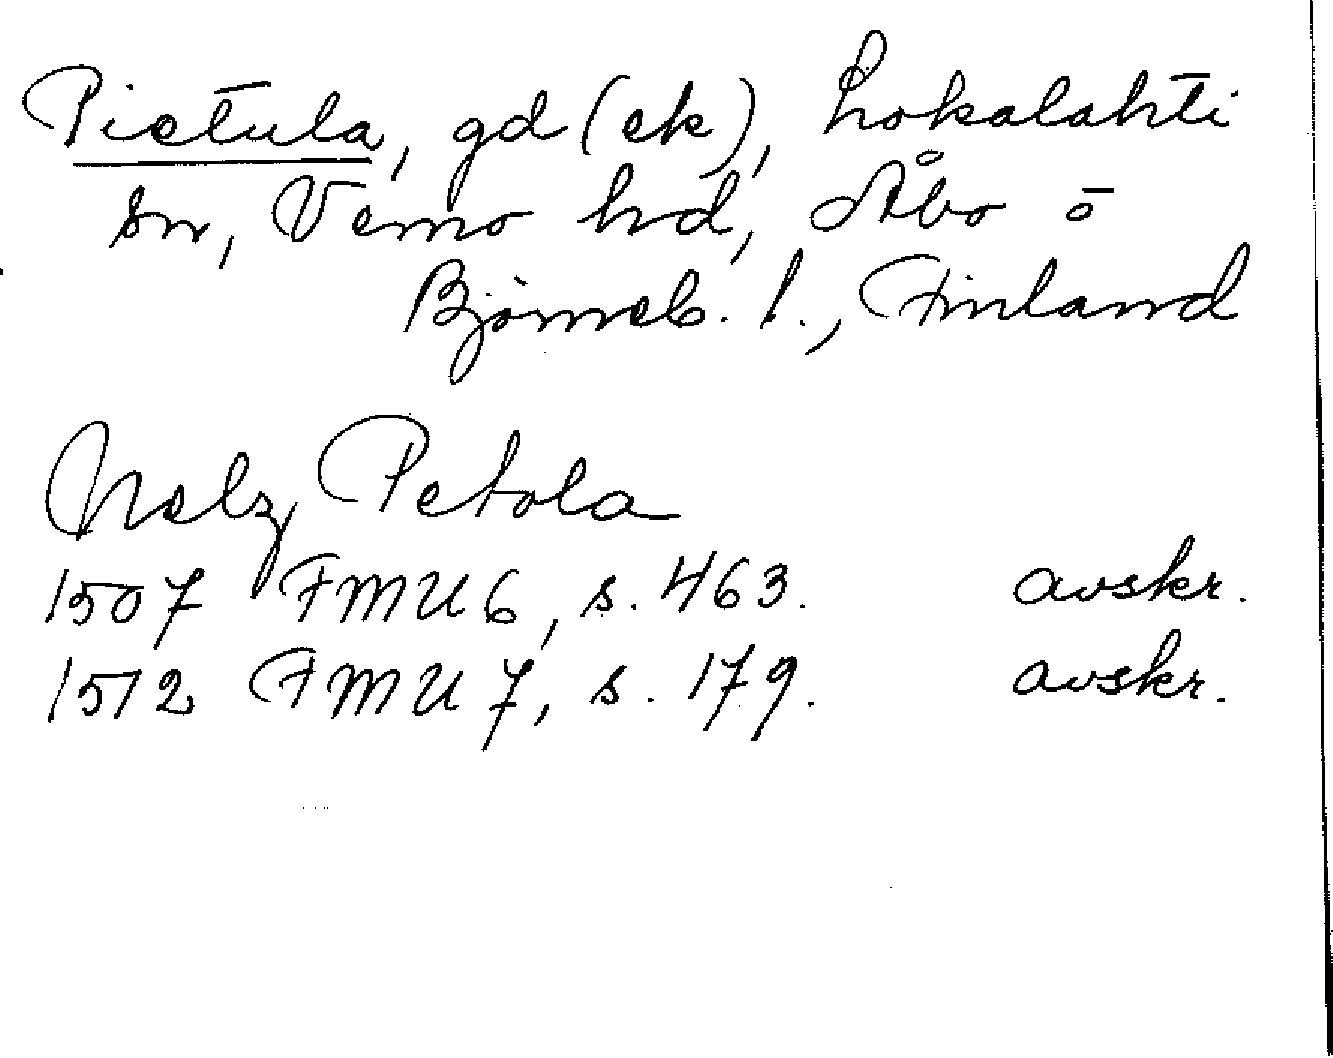 Pietula, gd (ek), Lokalahti
sn, Vemo hd, Åbo o
Björneb. l., Finland
Nelz Petola
1507 FMU 6, s. 463. avskr.
1512 FMU 7, s. 179. avskr.